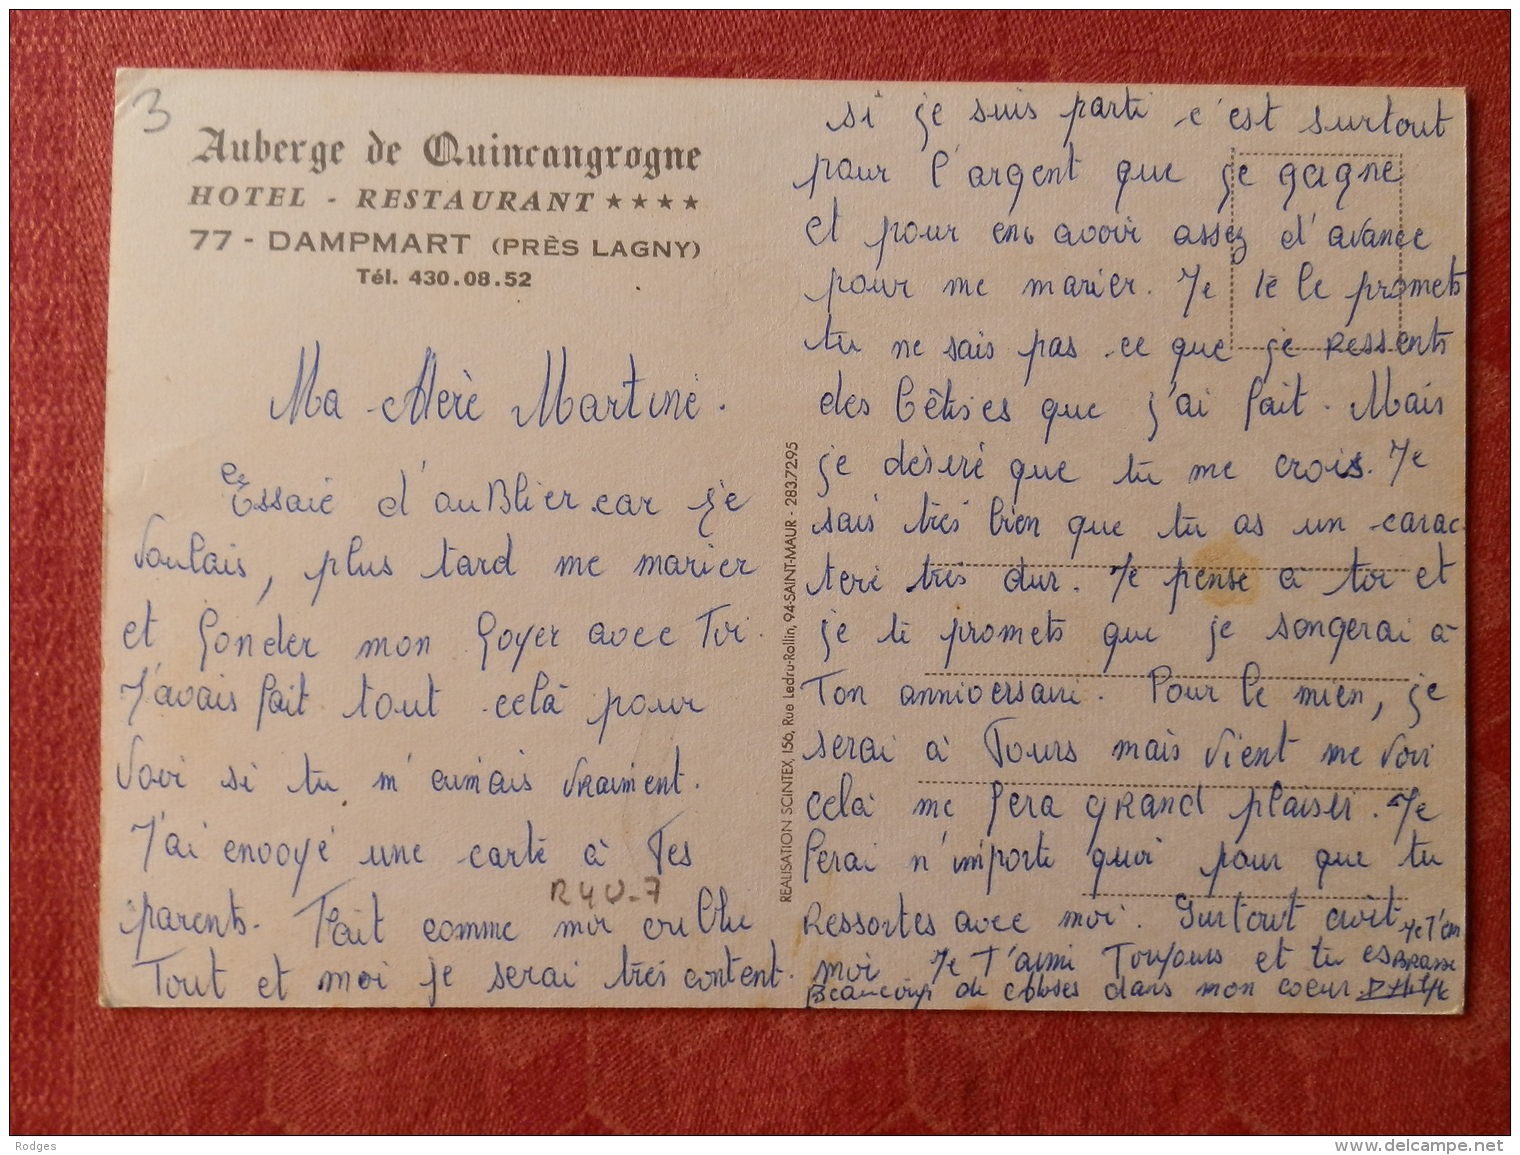 3
Auberge de Quincangrogne
HOTEL - RESTAURANT ★★★★
77 - DAMPMART (PRÈS LAGNY)
Tél. 430.08.52
Ma chérè Martine.
Essaie d'oublier car je
voulais, plus tard me marier
et fonder mon foyer avec Toi.
J'avais fait tout celà pour
voir si tu m'aimais vraiment.
J'ai envoyé une carte à Tes
parents. Fait comme moi oublie
Tout et moi je serai très content.
R4U-7
REALISATION SCINTEX, 156, Rue Ledru-Rollin, 94-SAINT-MAUR - 283.72.95
si je suis parti c'est surtout
pour l'argent que je gagne
et pour en avoir assez d'avance
pour me marier. Je te le promets
tu ne sais pas ce que je Ressents
des bêtises que j'ai fait. Mais
je désiré que tu me crois. Je
sais très bien que tu as un carac-
tere très dur. Je pense à toi et
je te promets que je songerai à
Ton anniversaire. Pour le mien, je
serai à Tours mais vient me voir
celà me fera grand plaisir. Je
ferai n'importe quoi pour que tu
Ressortes avec moi. Surtout croit
moi Je T'aime Toujours et tu es
Beaucoup de choses dans mon coeur.
Je T'em
Brasse
Rodges
www.delcampe.net